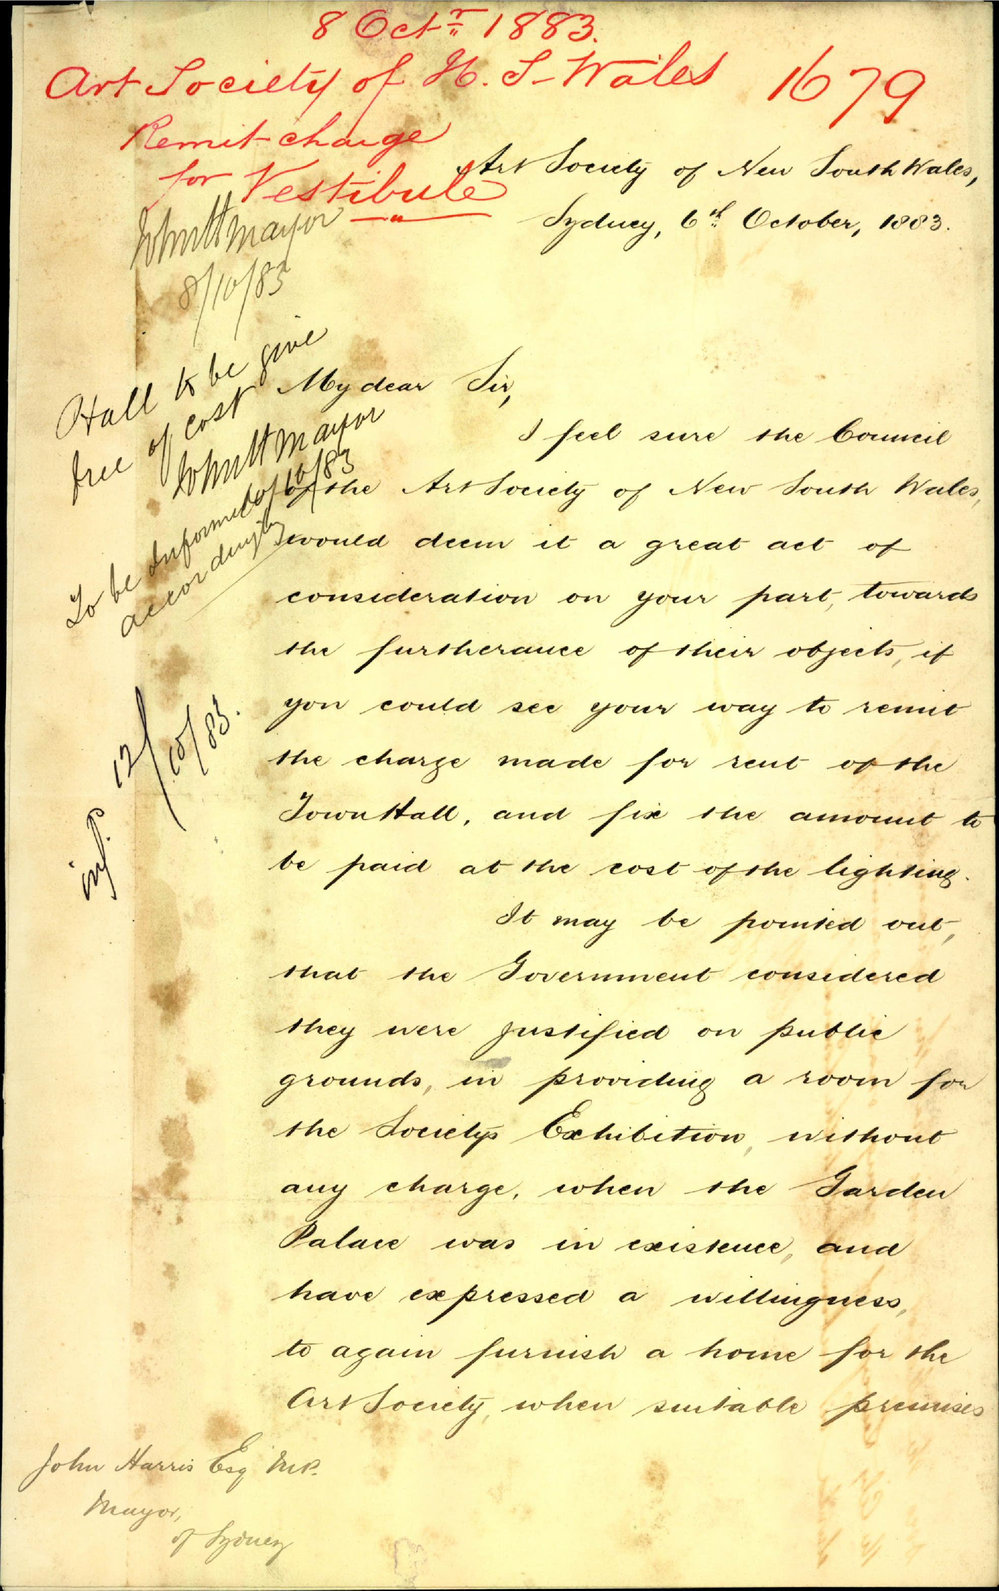 8 Octr 1883.
Art Society of N. S. Wales 1679
Remit charge
for Vestibule
John H Mayor
8/10/83
Art Society of New South Wales,
Sydney, 6th October, 1883.
Hall to be give
free of cost
John H Mayor
10/10/83
To be Informed
accordingly
inf. 12/10/83.
My dear Sir,
I feel sure the Council
of the Art Society of New South Wales,
would deem it a great act of
consideration on your part, towards
the furtherance of their objects, if
you could see your way to remit
the charge made for rent of the
Town Hall, and fix the amount to
be paid at the cost of the lighting.
It may be pointed out,
that the Government considered
they were justified on public
grounds, in providing a room for
the Societys Exhibition, without
any charge, when the Garden
Palace was in existence, and
have expressed a willingness,
to again furnish a home for the
Art Society, when suitable premises
John Harris Esq M.P.
Mayor,
of Sydney